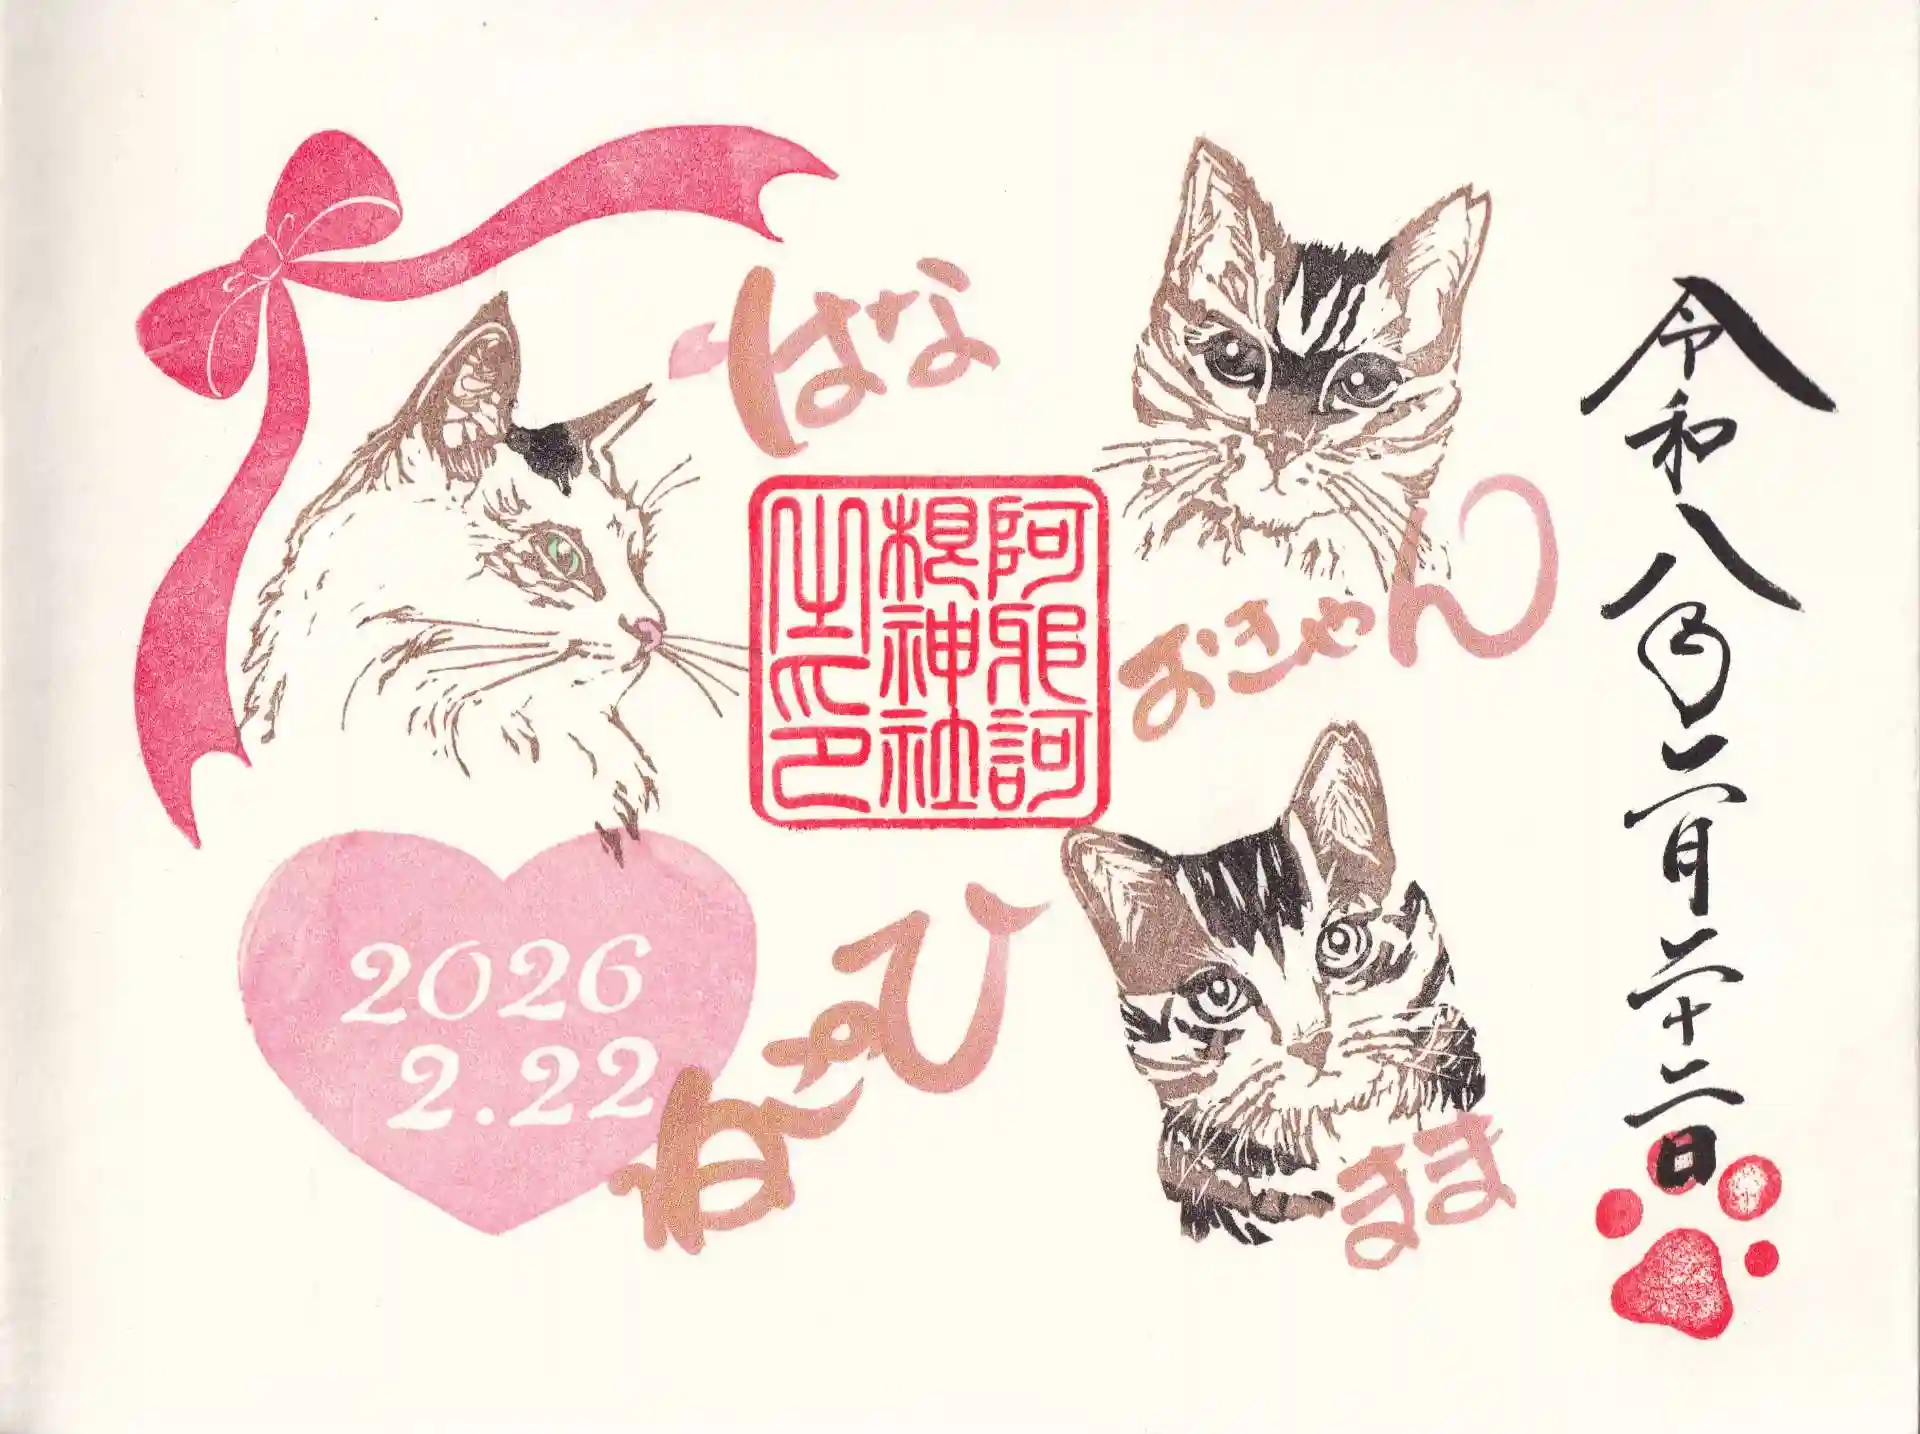 令和八年二月二十二日
はな
おきゃん
阿邪訶
根神社
之印
まま
ねこのひ
2026
2.22